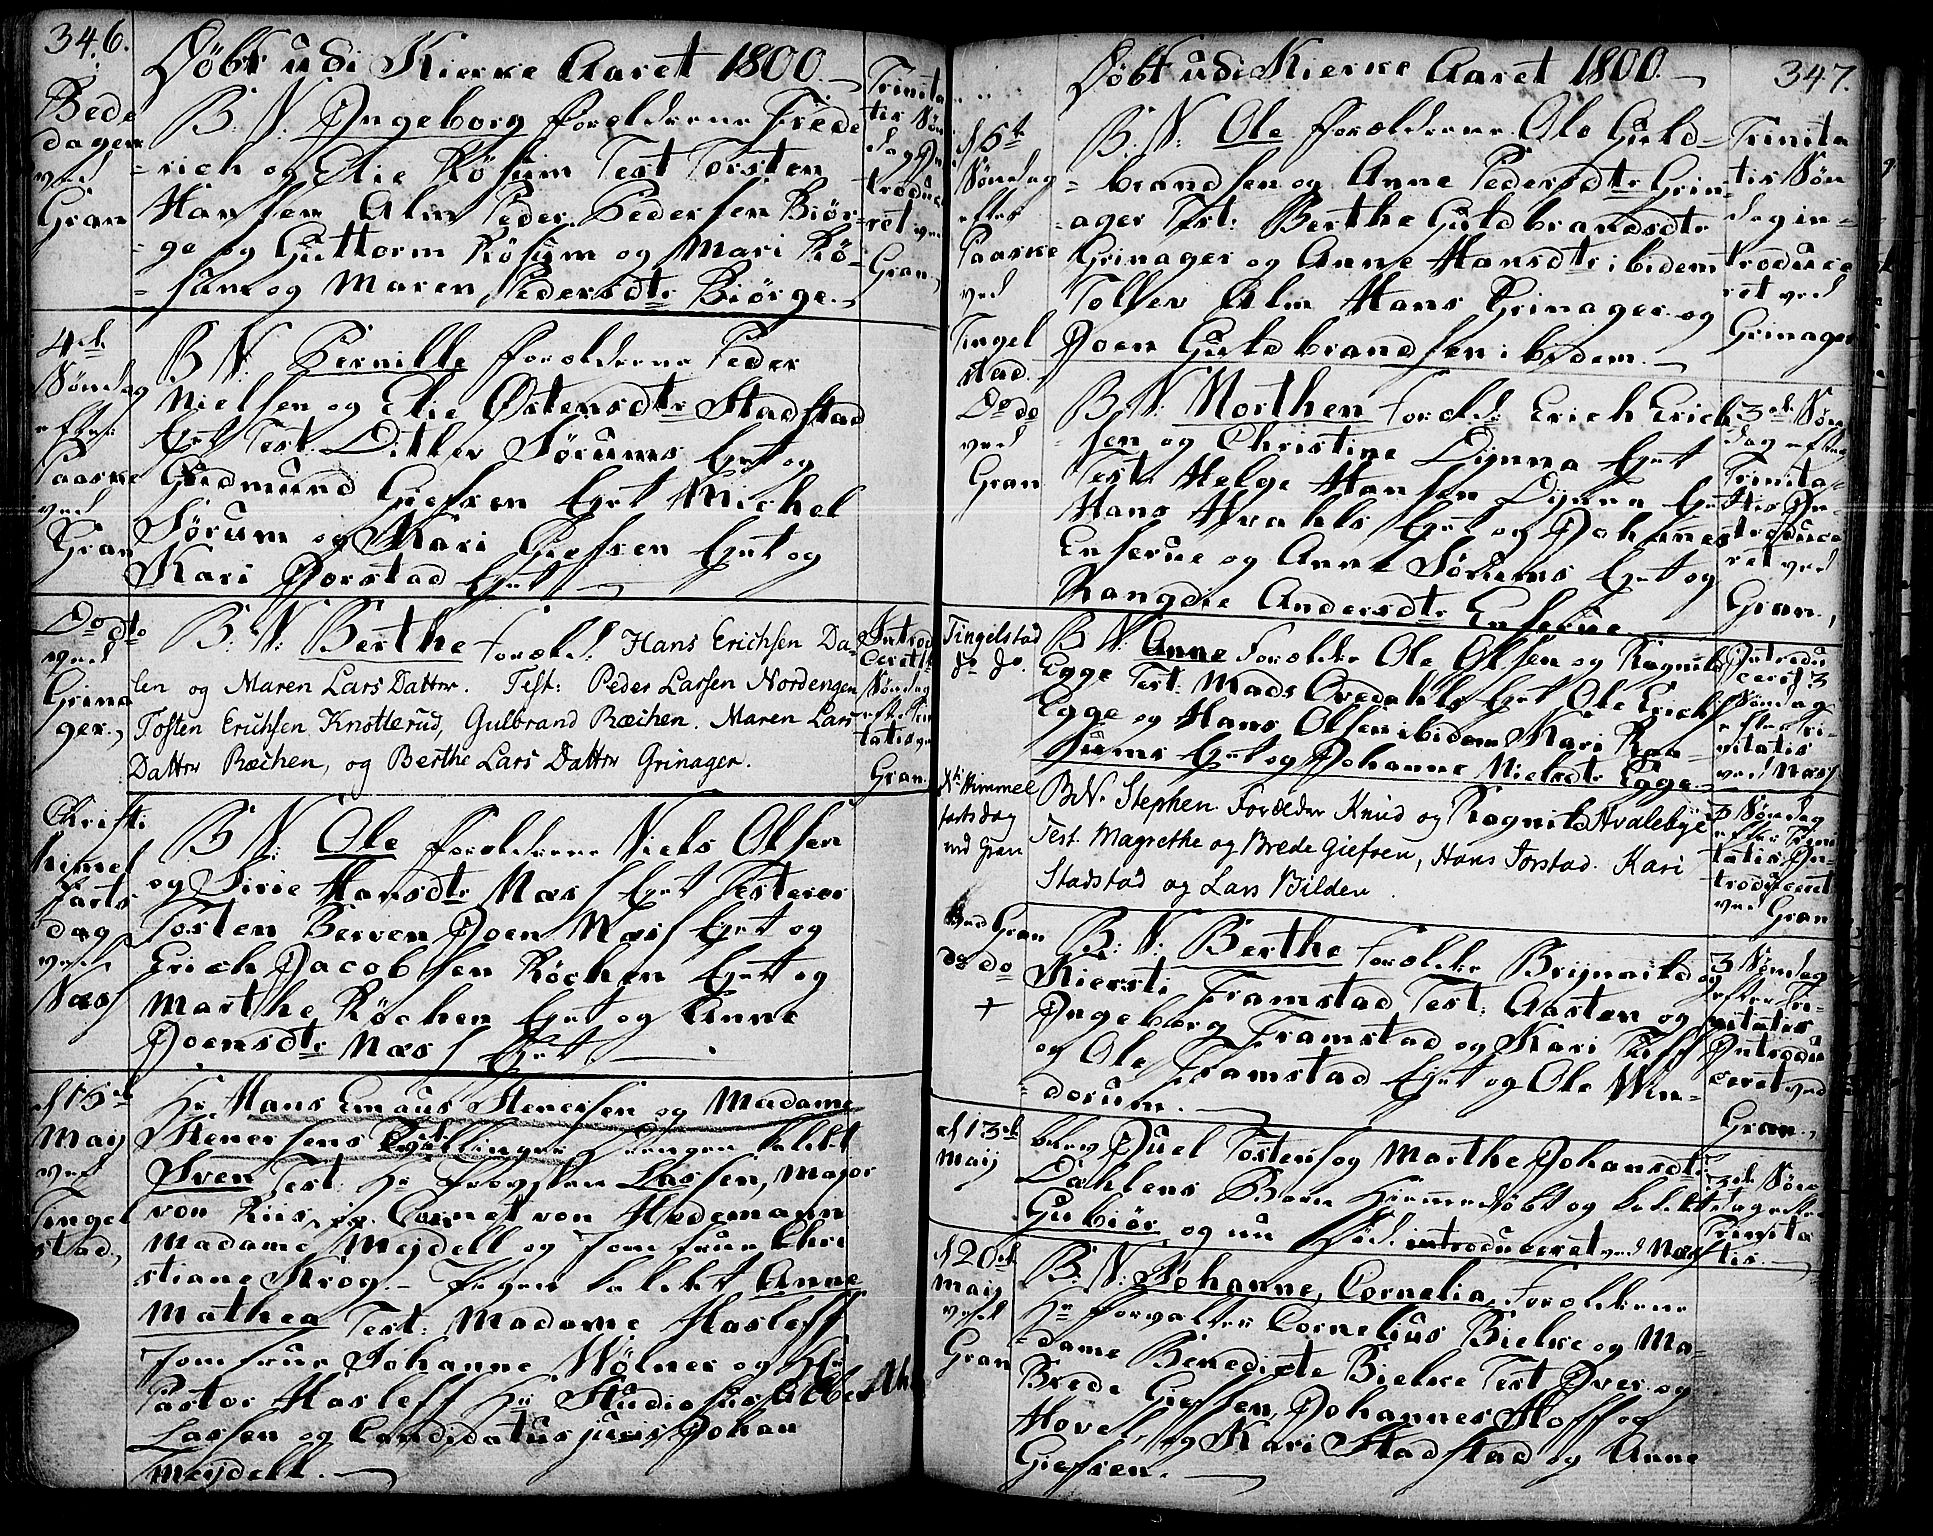 346.
Döbt udi Kierke Aaret 1800.
Bede
dagen
ved
Gran
B: N: Ingeborg Forældrene Frede
-rich og Elie Røsum Test Torsten
Hansen Alm Peder Pedersen Biør-
-ge og Guttorm Røsum og Mari Rø-
-sum og Maren Pedersdtr Biørge.
Trinita
tis Søn
dag In
troduce
ret ved
Gran
4de
Søndag
efter
Paaske
ved
Gran
B: N: Pernille Forældrene Peder
Nielsen og Elie Østensdtr Stadstad
Eyet Test Ditlev Sørums Eyet og
Gudmund Giefsen Eyet Michel
Sørum og Mari Giefsen Eyet og
Kari Jorstad Eyet
Do do
ved
Grina
ger.
B: N: Berthe Foræld: Hans Erichsen Da-
len og Maren Lars Datter. Test: Peder Larsen Nordengen
Tosten Erichsen Knotterud, Gulbrand Ræchen. Maren Lars
Datter Ræchen, og Berthe Lars Datter Grinager.
Introd
ceret
Søndag
efter Trin
tatis
Gran
Christi
himel
farts
dag
ved
Næss
B: N: Ole Forældrene Niels Olsen
og Sirie Hansdtr Næss Eyet Testerer
Tosten Berven Joen Næss Eyet og
Erich Jacobsen Røchen Eyet og
Marthe Røchen Eyet og Anne
Joensdtr Næss Eyet
d 15de
Maij
ved
Tingel
stad
Hr Hans Emaus Stenersen og Madame
Stenersens Tvillinger Drengen kaldt
Sven Test: Hr Provsten Lassen, Major
von Riis, og Cornet von Hedemann
Madame Mejdell og Jomfrue Chri
stiane Krog - Pigen kaldet Anne
Mathea Test: Madame Hasleff
Jomfrue Johanne Wølner og Hr
Pastor Hasleff Hr Studiosus
Lassen og Candidatus juris Johan
Mejdell.
347.
Döbt udi Kierke Aaret 1800.
d 5te
Søndag
efter
Paaske
ved
Tingel
stad.
B: N: Ole Forældrene Ole Guld-
-brandsen og Anne Pedersdtr Grin-
-ager Test: Berthe Guldbrandsdtr
Grinager og Anne Hansdtr ibidem
Tollev Alm Hans Grinager og
Joen Guldbrandsen ibidem
Trinita
tis Søn
dag in-
troduce
ret ved
Grinager
Do do
ved
Gran
B: N: Morthen Foræld: Erich Erich
sen og Christine Dynna Eyet
Test: Helge Hansen Dynna Eyet
Hans Hvahls Eyet og Johannes
Enserue og Anne Sørums Eyet og
Rangdie Andersdtr Enserue
3de Søn
dag efter
Trinita-
tis In-
troduce
ret ved
Gran
Tingelstad
do do.
B N: Anne Forældre Ole Olsen og Ragnild
Egge Test: Mads Ovedahls Eyet Ole Erich
Egge og Hans Olsen ibidem Kari Raa-
sums Eyet og Johanne Nielsdtr Egge
Introdu
ceret 3
Søndag
efter Tri-
nitatis
ved Næss
Xti Himmel
fartsdag
ved Gran
B.N. Stephen. Forælder Knud og Ragnild Hvalebye
Test. Magrethe og Brede Giefsen, Hans Jorstad. Kari
Stadstad og Lars Bilden.
3 Søndag
efter Trini
tatis In-
troduceret
ved Gran
Ved Gran
do do
+
B: N: Berthe Forældre Brynnild og
Kiersti Framstad Test: Aasten og
Ingeborg Framstad og Kari
og Ole Framstad Eyet og Ole Win-
-dorum.
3 Søndag
efter Tri-
nitatis
Introdu
ceret ved
Gran
d 13de
Maij
Juel Tostens og Marthe Johansdtr
Dahlens Barn Hiemmedøbt og kaldet
Gubiør og nu introduceret ved Næss
3de Søn
dag efter
Trinita
tis.
d 20de
Maij
ved
Gran
B: N: Johanne Cornelia Forældrene
Hr Forvalter Cornelius Bielke og Ma-
-dame Benedicte Bielke Test Iver og
Brede Giefsen, Johannes Hoff og
Hovel, og Kari Stadstad og Anne
Giefsen.